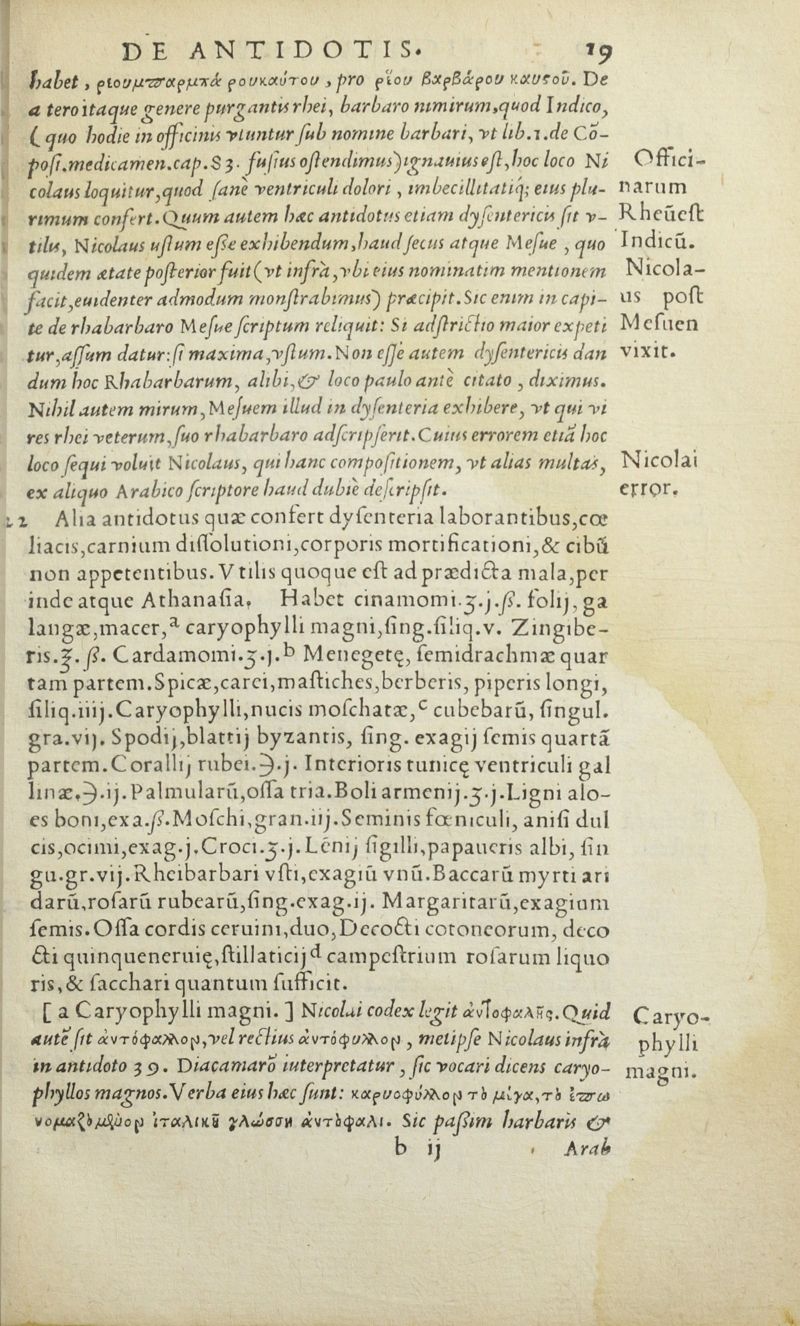 DE ANTIDOTIS. 19
habet, ριουμπαρμπὰ ρουκαύτου, pro ρίου βαρβάρου καυϛοῦ. De
a tero itaque genere purgantis rhei, barbaro nimirum, quod Indico,
( quo hodie in officinis vtuntur sub nomine barbari, vt lib.1.de Cō-
posi.medicamen.cap.83. fusius ostendimus) ignauius est, hoc loco Ni
colaus loquitur, quod sanè ventriculi dolori, imbecillitatiq; eius plu-
rimum confert. Quum autem hæc antidotus etiam dysentericis sit v-
tilis, Nicolaus ustum esse exhibendum, haud secus atque Mesue, quo
quidem ætate posterior fuit (vt infrà, vbi eius nominatim mentionem
facit, euidenter admodum monstrabimus) præcipit. Sic enim in capi-
te de rhabarbaro Mesue scriptum reliquit: Si adstrictio maior expeti
tur, assum datur: si maxima, vstum. Non esse autem dysentericis dan
dum hoc Rhabarbarum, alibi, & loco paulo antè citato, diximus.
Nihil autem mirum, Mesuem illud in dysenteria exhibere, vt qui vi
res rhei veterum, suo rhabarbaro adscripserit. Cuius errorem etiā hoc
loco sequi voluit Nicolaus, qui hanc compositionem, vt alias multas,
ex aliquo Arabico scriptore haud dubiè descripsit.
Offici-
narum
Rheū est
Indicū.
Nicola-
us post
Mesuen
vixit.
Nicolai
error.
11 Alia antidotus quæ confert dysenteria laborantibus, cœ
liacis, carnium dissolutioni, corporis mortificationi, & cibū
non appetentibus. Vtilis quoque est ad prædicta mala, per
inde atque Athanasia. Habet cinamomi.ʒ.j.ß. folij, ga
langæ, macer,ᵃ caryophylli magni, sing.siliq.v. Zingibe-
ris.ʒ.ß. Cardamomi.ʒ.j.ᵇ Menegetę, semidrachmæ quar
tam partem. Spicæ, carci, mastiches, berberis, piperis longi,
siliq.iiij. Caryophylli, nucis moschatæ,ᶜ cubebarū, singul.
gra.vij. Spodij, blattij byzantis, sing. exagij semis quartā
partem. Corallij rubei.℈.j. Interioris tunicę ventriculi gal
linæ.℈.ij. Palmularū, ossa tria. Boli armenij.ʒ.j. Ligni alo-
es boni, exa.ß. Moschi, gran.iij. Seminis fœniculi, anisi dul
cis, ocimi, exag.j. Croci.ʒ.j. Lēnij sigilli, papaueris albi, sin
gu.gr.vij. Rheibarbari vsti, exagiū vnū. Baccarū myrti ari
darū, rosarū rubearū, sing.exag.ij. Margaritarū, exagium
semis. Ossa cordis ceruini, duo, Decocti cotoneorum, deco
cti quinqueneruię, stillaticijᵈ campestrium rosarum liquo
ris, & sacchari quantum sufficit.
[ a Caryophylli magni. ] Nicolai codex legit ἀντοφαλῆς. Quid
autē sit ἀντόφαλλον, vel rectius ἀντόφυλλον, metipse Nicolaus infrà
in antidoto 39. Diacamarō iuterpretatur, sic vocari dicens caryo-
phyllos magnos. Verba eius hæc sunt: καρυοφύλλον τὸ μέγα, τὸ ἐπω
νομαζόμενον ἰταλικῇ γλώσσῃ ἀντόφαλι. Sic passim barbaris &
Caryo-
phylli
magni.
b ij Arab